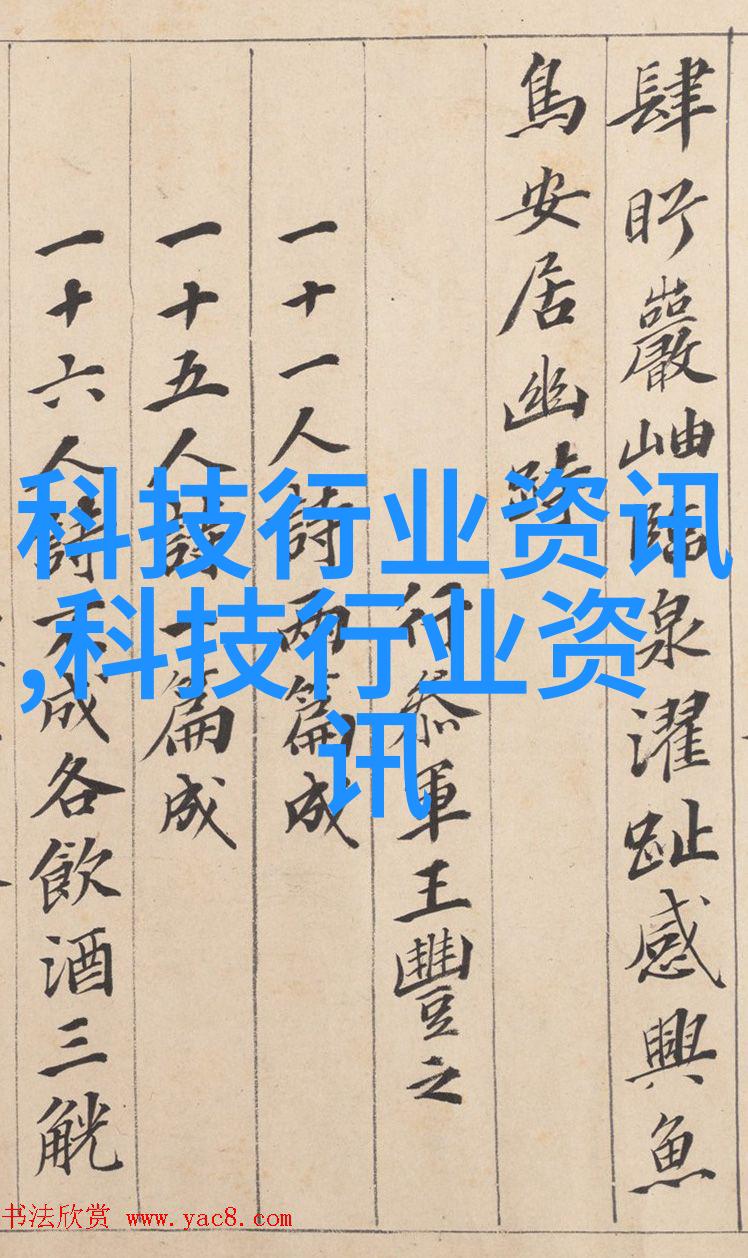 肆眄巖岫臨泉濯趾感興魚
鳥安居幽跱
行叅軍王豐之
一十一人詩兩篇成
一十五人詩一篇成
一十六人詩不成各飲酒三觥
科技行业资讯
,科技行业资
讯
书法欣赏 www.yac8.com